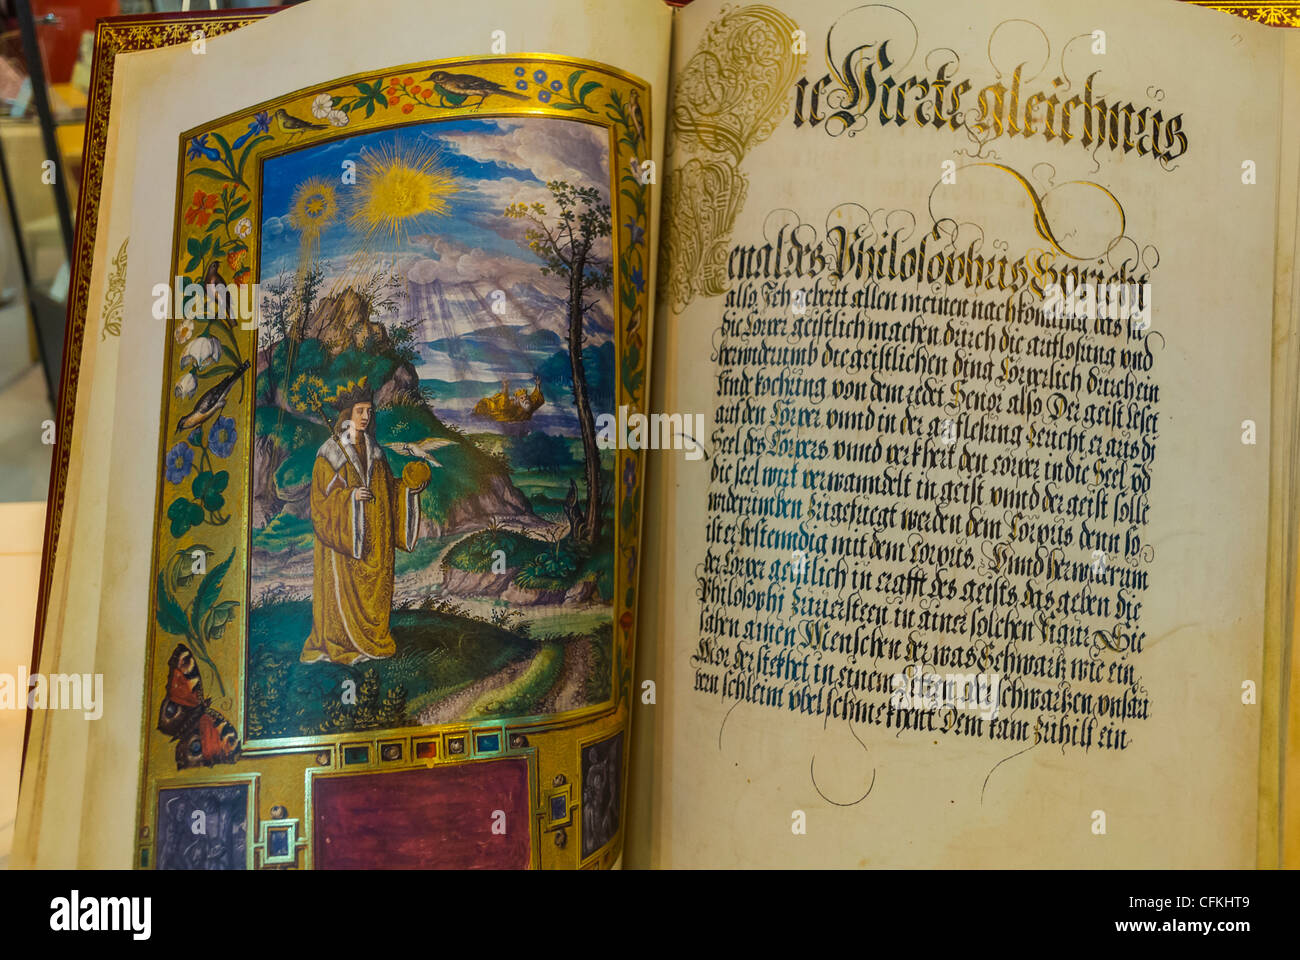 Die Vierte gleichnus
Menaldes Philosophus Spricht
also Ich gebeut allen meinen nachkomling das sie
die Cörper geistlich machen durch die auflosung vnd
herwiderumb die geistlichen ding Cörperlich durch ein
linde kochung von dem redet Senor also Der geist leset
auf den Cörper vnnd in der auflesung Zeucht er aus di
Seel des Cörpers vnnd verkhert den corper in die Seel vnd
die seel wirt verwanndelt in geist vnnd der geist solle
widerumben Zugefuegt werden dem Corpus denn so
ist er bestenndig mit dem corpus. Vnnd herwiderum
der Corper geistlich in crafft des geists das geben die
Philosophi Zuuersteen in ainer solchen Figur Sie
sahen ainen Menschen der was Schwartz wie ein
Mor der stekhet in einem Letten oder schwartzen vnsau
bern schleim vbel schmekhent Dem kam Zuhilf ein
alamy
Image ID: CFKHT9
www.alamy.com